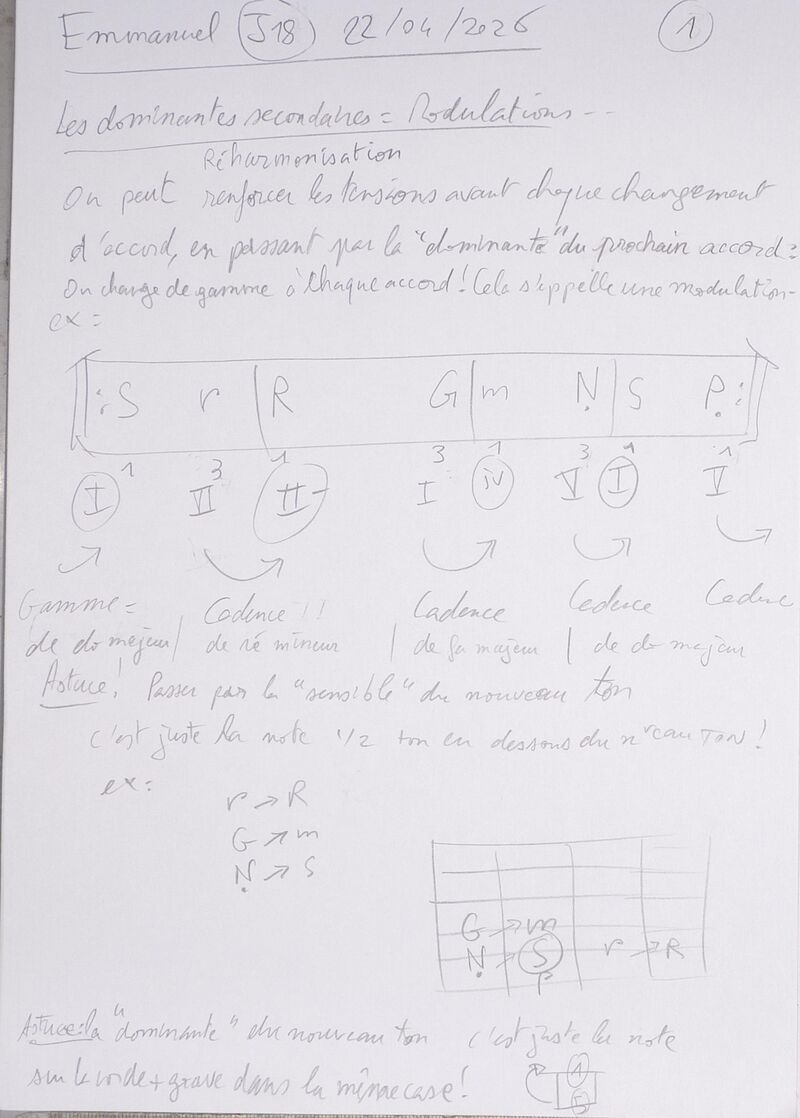 Emmanuel J18 22/04/2026 1
Les dominantes secondaires = Modulations...
Réharmonisation
On peut renforcer les tensions avant chaque changement
d'accord, en passant par la "dominante" du prochain accord :
On change de gamme à chaque accord ! Cela s'appelle une modulation.
ex :
||: S r | R G | m Ṇ | S P̣ :||
I 1 VI 3 II- 1 I 3 IV 1 V 3 I 1 V 1
Gamme = Cadence !! Cadence Cadence Cadence
de do majeur | de ré mineur | de fa majeur | de do majeur
Astuce ! Passer par la "sensible" du nouveau ton
c'est juste la note 1/2 ton en dessous du nveau TON !
ex :
r → R
G → m
Ṇ → S
G → m
Ṇ → S r → R
P
Astuce : la "dominante" du nouveau ton c'est juste la note
sur la corde + grave dans la même case !
1
5